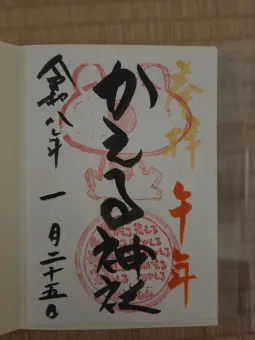 奉拝
午年
かえる神社
令和八年 一月二十五日